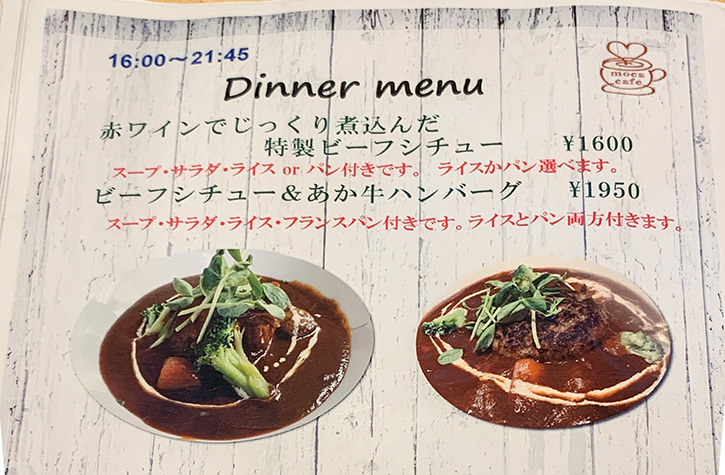 16:00～21:45
Dinner menu
moca
cafe
赤ワインでじっくり煮込んだ
特製ビーフシチュー ¥1600
スープ・サラダ・ライス or パン付きです。 ライスかパン選べます。
ビーフシチュー＆あか牛ハンバーグ ¥1950
スープ・サラダ・ライス・フランスパン付きです。ライスとパン両方付きます。